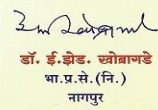 डॉ. ई.झेड. खोब्रागडे
भा.प्र.से.(नि.)
नागपुर